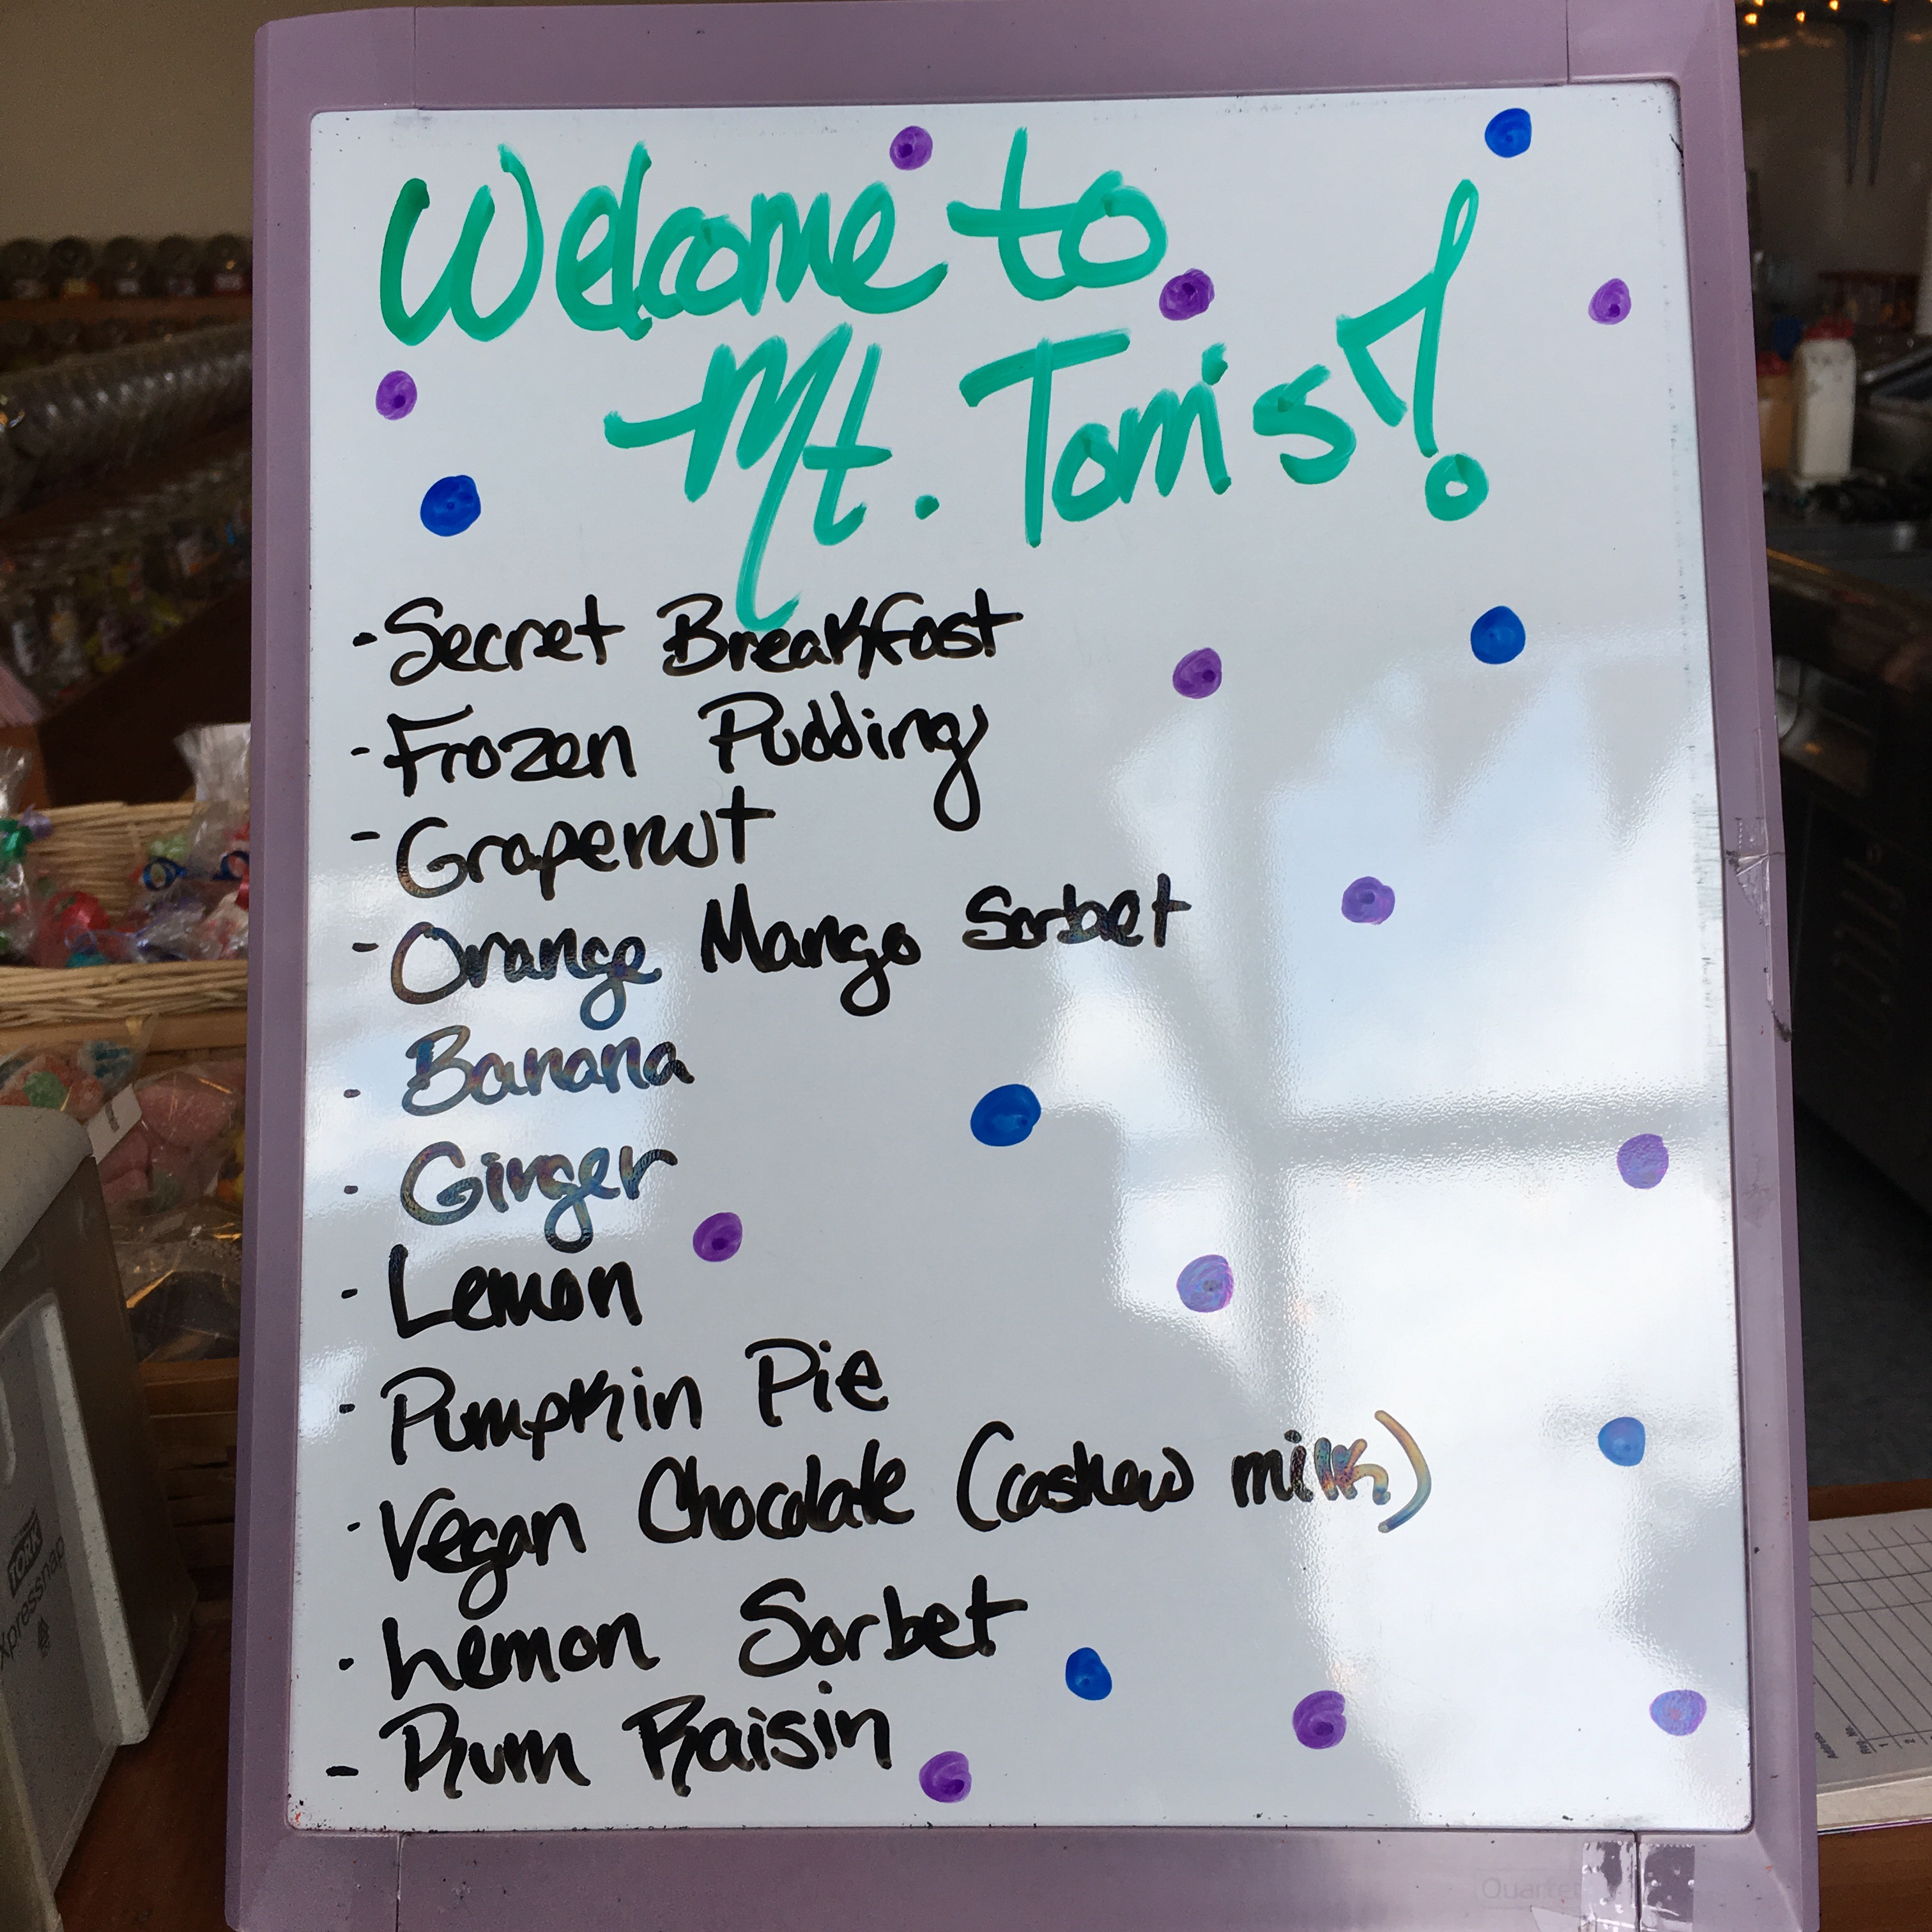 Welcome to
Mt. Tom's!
- Secret Breakfast
- Frozen Pudding
- Grapenut
- Orange Mango Sorbet
- Banana
- Ginger
- Lemon
- Pumpkin Pie
- Vegan Chocolate (cashew milk)
- Lemon Sorbet
- Rum Raisin
TORK
xpressnap
Quartet